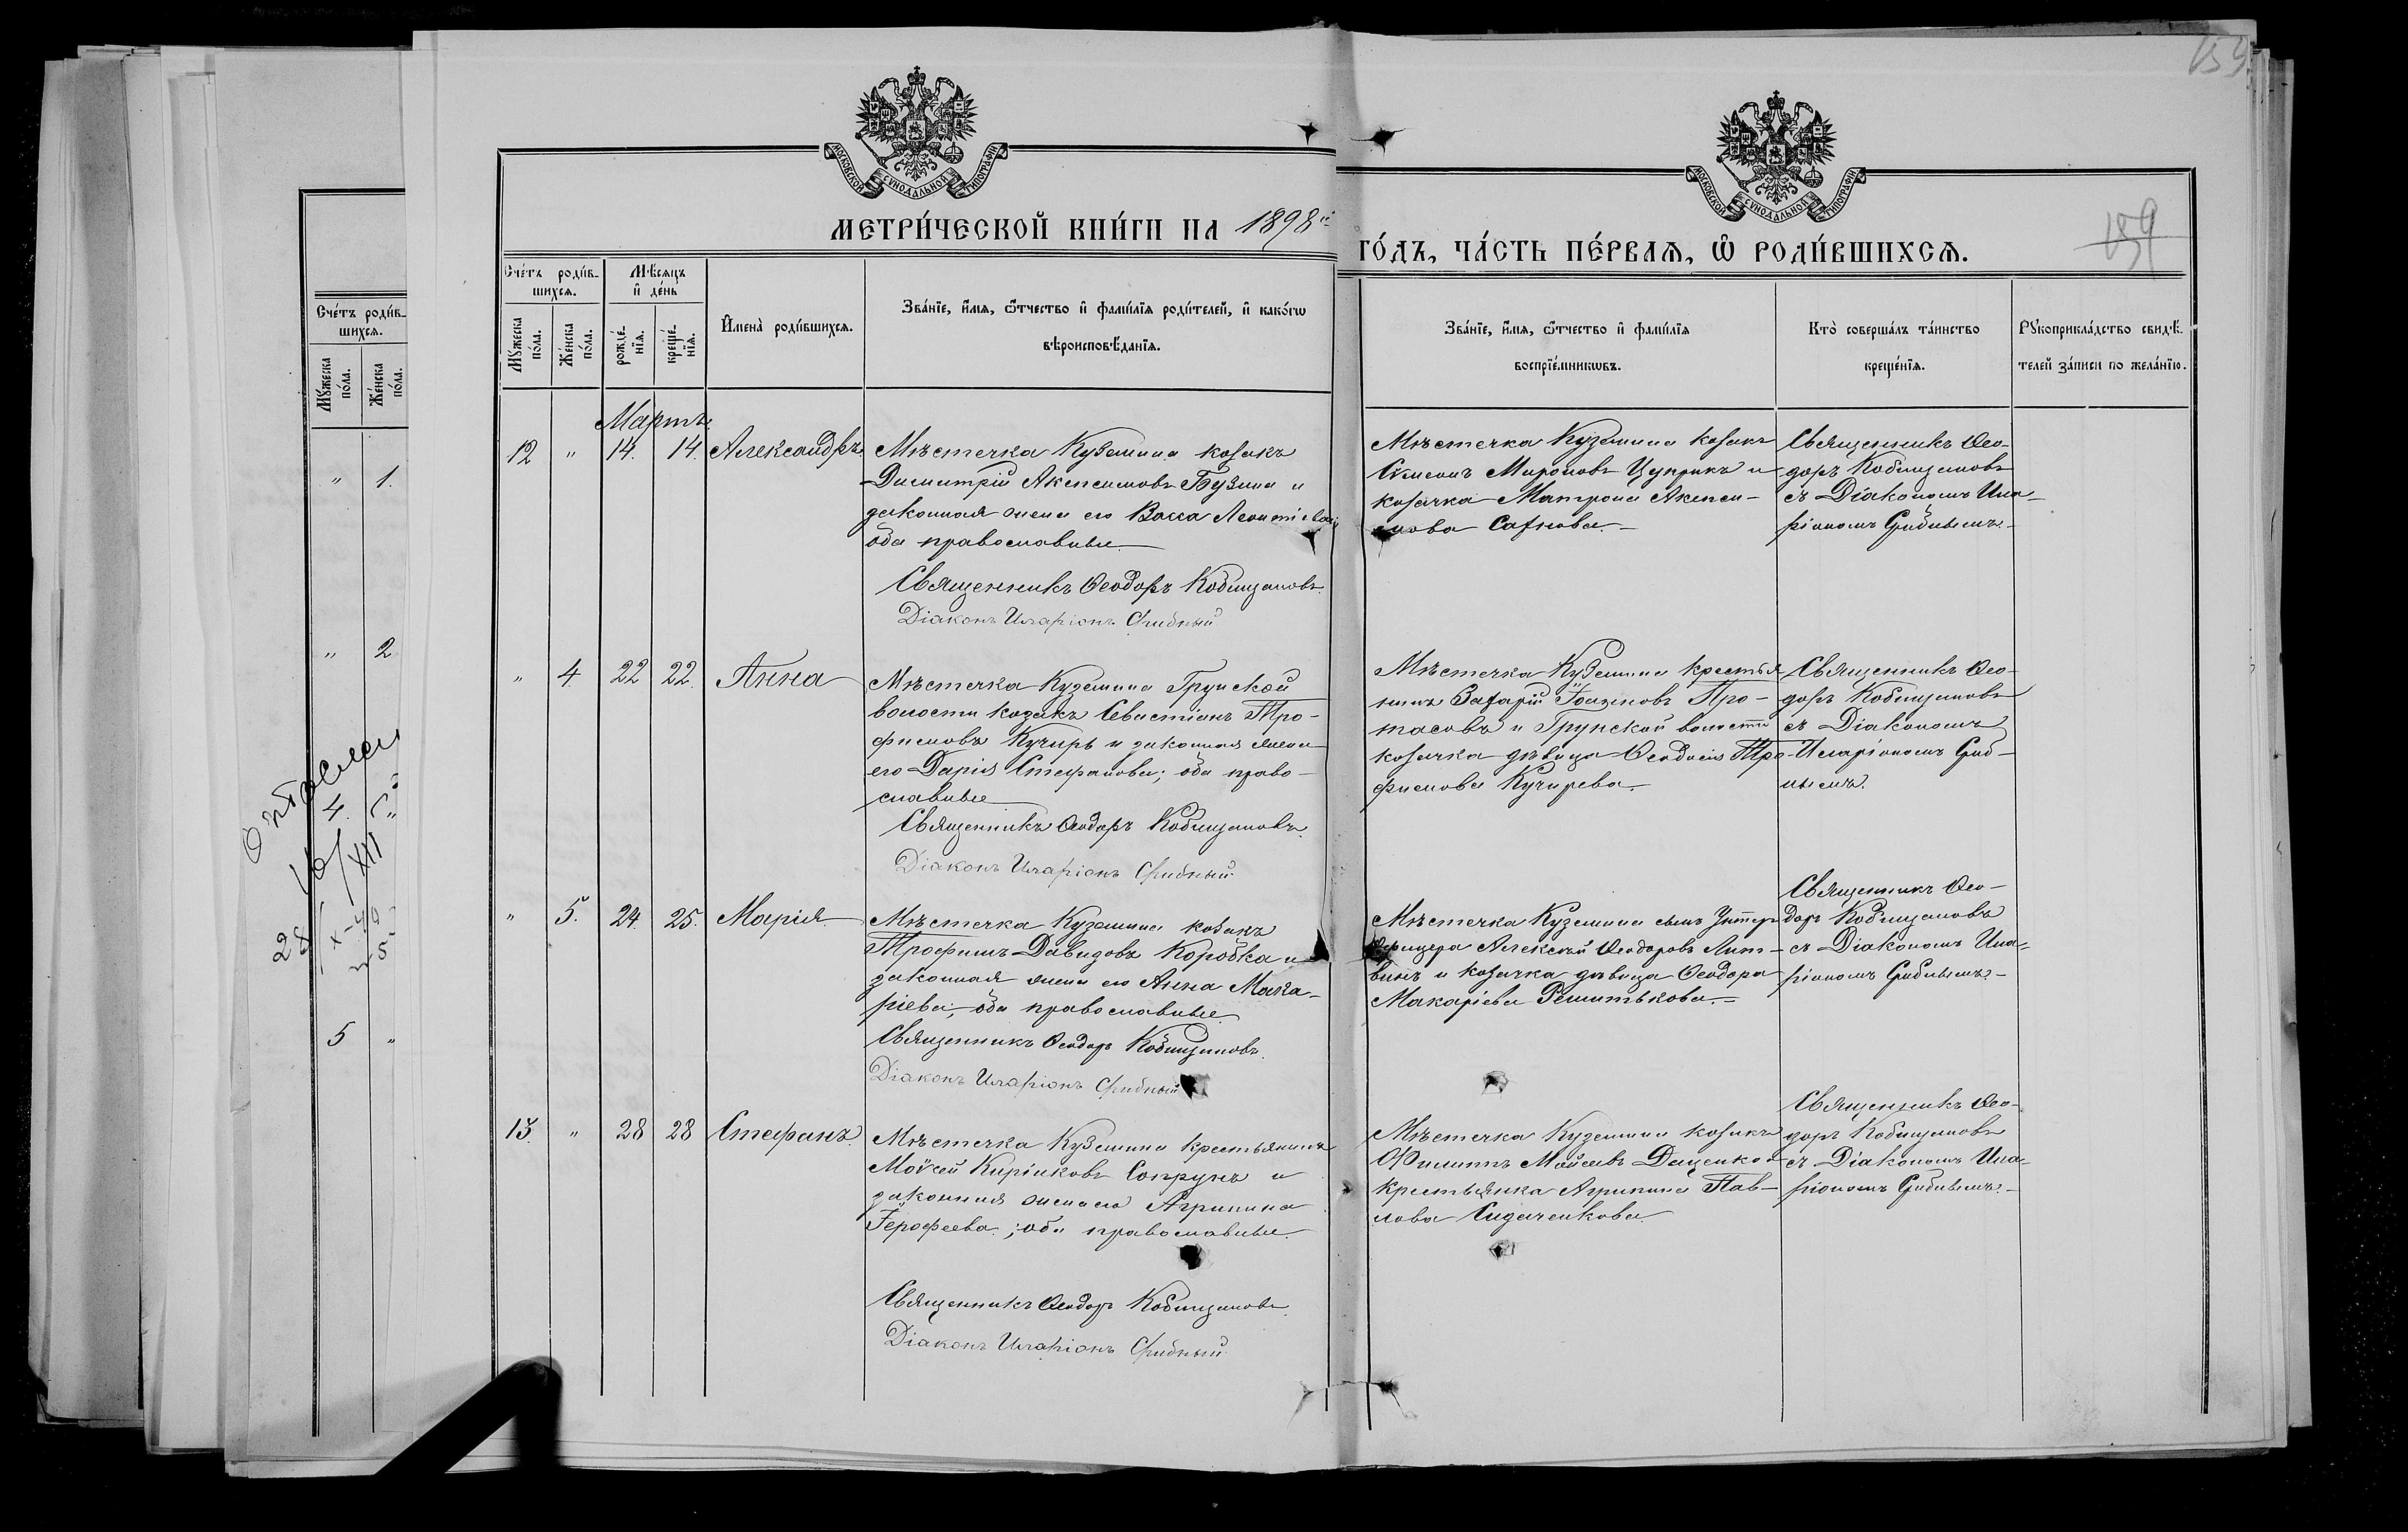 159
МОСКОВСКОЙ СѴНОДАЛЬНОЙ ТИПОГРАФІИ
МОСКОВСКОЙ СѴНОДАЛЬНОЙ ТИПОГРАФІИ
МЕТРИ́ЧЕСКОЙ КНИ́ГИ НА 1898й
ГО́ДЪ, ЧА́СТЬ ПЕ́РВАѦ, Ѡ҆ РОДИ́ВШИХСѦ.
159
Сче́тъ роди́в-
шихсѧ.
Мꙋжеска по́ла.
Же́нска по́ла.
Мѣ́сѧцъ
и҆ де́нь
рожде́-
нїѧ.
креще́-
нїѧ.
И҆мена̀ роди́вшихсѧ.
Зва́нїе, и҆́мѧ, ѻ҆́тчество и҆ фамі́лїѧ роди́телей, и҆ како́гѡ
вѣроисповѣ́данїѧ.
Зва́нїе, и҆́мѧ, ѻ҆́тчество и҆ фамі́лїѧ
воспрїе́мникѡвъ.
Кто̀ соверша́лъ та́инство
креще́нїѧ.
Рꙋкоприкла́дство свидѣ́-
телей за́писи по жела́нїю.
Сче́тъ роди́в-
шихсѧ.
Мꙋжеска по́ла.
Же́нска по́ла.
" 1.
" 2
4.
16/XII
28/X-49
5 "
Мартъ.
12 " 14. 14. Александръ
Мѣстечка Куземина козакъ
Димитрій Акепсимовъ Бузина и
законная жена его Васса Леонтіева;
оба православные.
Священникъ Ѳеодоръ Кобищановъ.
Діаконъ Иларіонъ Грибный
Мѣстечка Куземина козакъ
Сѵмеонъ Мироновъ Цуприкъ и
козачка Матрона Акепси-
мова Сахнова.
Священникъ Ѳео-
доръ Кобищановъ
съ Діакономъ Ила-
ріономъ Грибнымъ.
" 4. 22 22. Анна
Мѣстечка Куземина Грунской
волости козакъ Севастіанъ Тро-
фимовъ Кучиръ и законная жена
его Дарія Стефанова; оба право-
славные
Священникъ Ѳеодоръ Кобищановъ.
Діаконъ Иларіонъ Грибный
Мѣстечка Куземина крестья
нинъ Захарій Іоанновъ Про-
тасовъ и Грунской волости
козачка дѣвица Ѳеодосія Тро-
фимова Кучирева.
Священникъ Ѳео-
доръ Кобищановъ
съ Діакономъ
Иларіономъ Гриб-
нымъ.
" 5. 24. 25. Марія
Мѣстечка Куземина козакъ
Трофимъ Давидовъ Коробка и
законная жена его Анна Мака-
ріева; оба православные.
Священникъ Ѳеодоръ Кобищановъ.
Діаконъ Иларіонъ Грибный
Мѣстечка Куземина сынъ Унтеръ
Офицера Алексѣй Ѳеодоровъ Лит-
винъ и козачка дѣвица Ѳеодора
Макаріева Решитькова.
Священникъ Ѳео-
доръ Кобищановъ
съ Діакономъ Ила-
ріономъ Грибнымъ.
13. " 28 28 Стефанъ.
Мѣстечка Куземина крестьянинъ
Моѵсей Киріаковъ Сопрунъ и
законная жена его Агрипина
Іерофеева; оба православные.
Священникъ Ѳеодоръ Кобищановъ
Діаконъ Иларіонъ Грибный
Мѣстечка Куземина козакъ
Филиппъ Мойсеевъ Даценко и
крестьянка Агрипина Пав-
лова Сидаченкова.
Священникъ Ѳео-
доръ Кобищановъ
съ Діакономъ Ила-
ріономъ Грибнымъ.